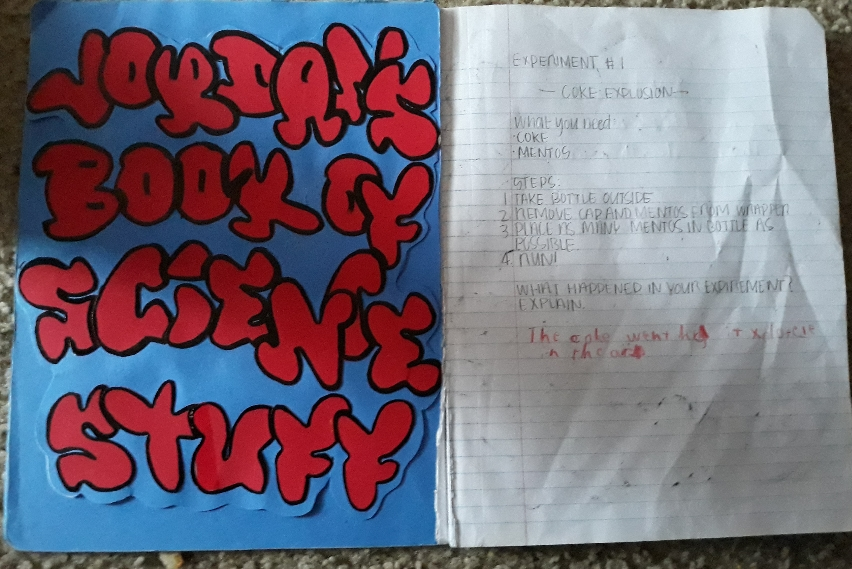 JORDAN'S
BOOK OF
SCIENCE
STUFF
EXPERIMENT # 1
— COKE EXPLOSION —
What you need:
· COKE
· MENTOS
STEPS:
1 TAKE BOTTLE OUTSIDE
2. REMOVE CAP AND MENTOS FROM WRAPPER
3. PLACE AS MANY MENTOS IN BOTTLE AS
POSSIBLE.
4. RUN!
WHAT HAPPENED IN YOUR EXPIREMENT?
EXPLAIN.
The coke went
in the